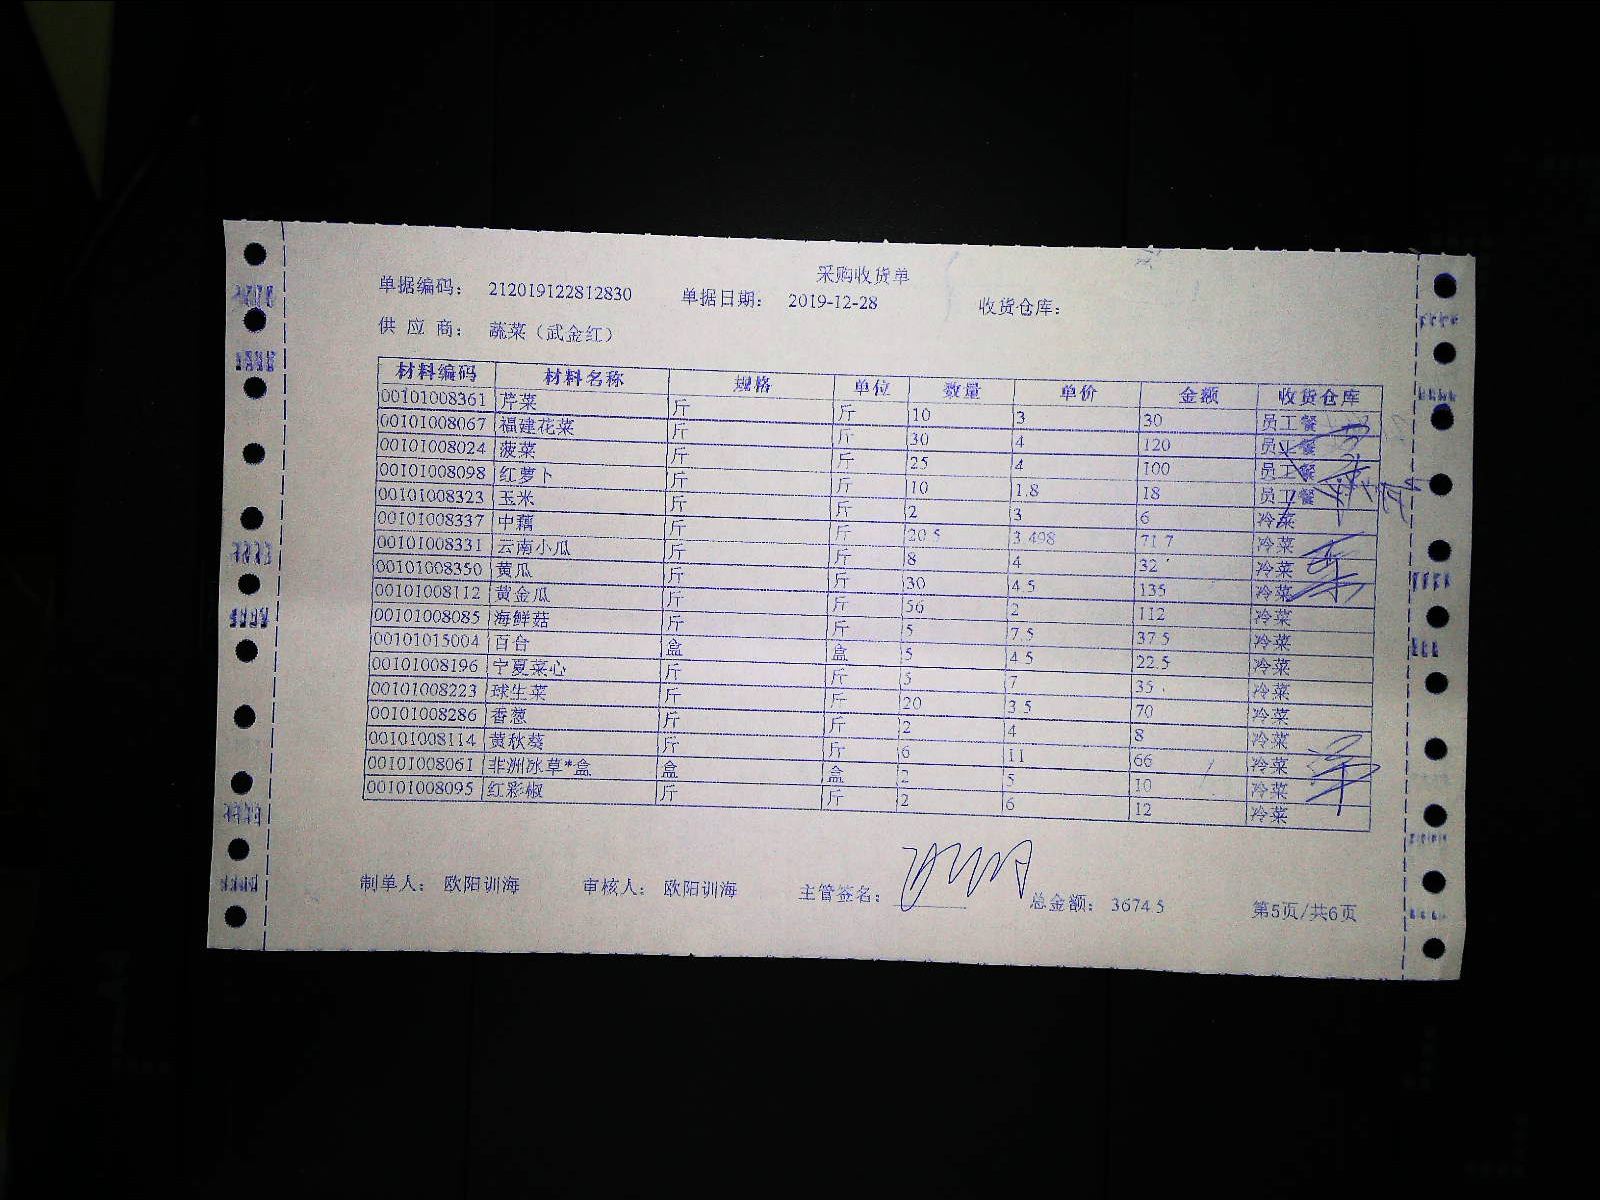 采购收货单
单据编码： 212019122812830 单据日期： 2019-12-28 收货仓库：
供 应 商： 蔬菜（武金红）
材料编码 材料名称 规格 单位 数量 单价 金额 收货仓库
00101008361 芹菜 斤 斤 10 3 30 员工餐
00101008067 福建花菜 斤 斤 30 4 120 员工餐
00101008024 菠菜 斤 斤 25 4 100 员工餐
00101008098 红萝卜 斤 斤 10 1.8 18 员工餐
00101008323 玉米 斤 斤 2 3 6 冷菜
00101008337 中藕 斤 斤 20.5 3.498 71.7 冷菜
00101008331 云南小瓜 斤 斤 8 4 32 冷菜
00101008350 黄瓜 斤 斤 30 4.5 135 冷菜
00101008112 黄金瓜 斤 斤 56 2 112 冷菜
00101008085 海鲜菇 斤 斤 5 7.5 37.5 冷菜
00101015004 百合 盒 盒 5 4.5 22.5 冷菜
00101008196 宁夏菜心 斤 斤 5 7 35 冷菜
00101008223 球生菜 斤 斤 20 3.5 70 冷菜
00101008286 香葱 斤 斤 2 4 8 冷菜
00101008114 黄秋葵 斤 斤 6 11 66 冷菜
00101008061 非洲冰草*盒 盒 盒 2 5 10 冷菜
00101008095 红彩椒 斤 斤 2 6 12 冷菜
制单人： 欧阳训海 审核人： 欧阳训海 主管签名： 总金额： 3674.5 第5页/共6页